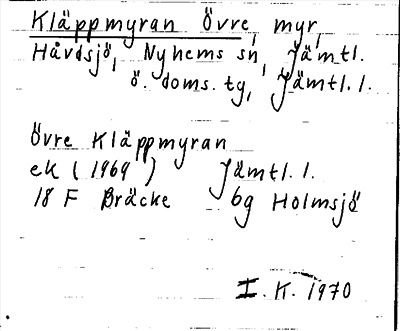 Kläppmyran Övre, myr,
Håvdsjö, Nyhems sn, Jämtl.
ö. doms. tg, Jämtl. l.
Övre Kläppmyran
ek (1969) Jämtl. l.
18 F Bräcke 6g Holmsjö
I. K. 1970